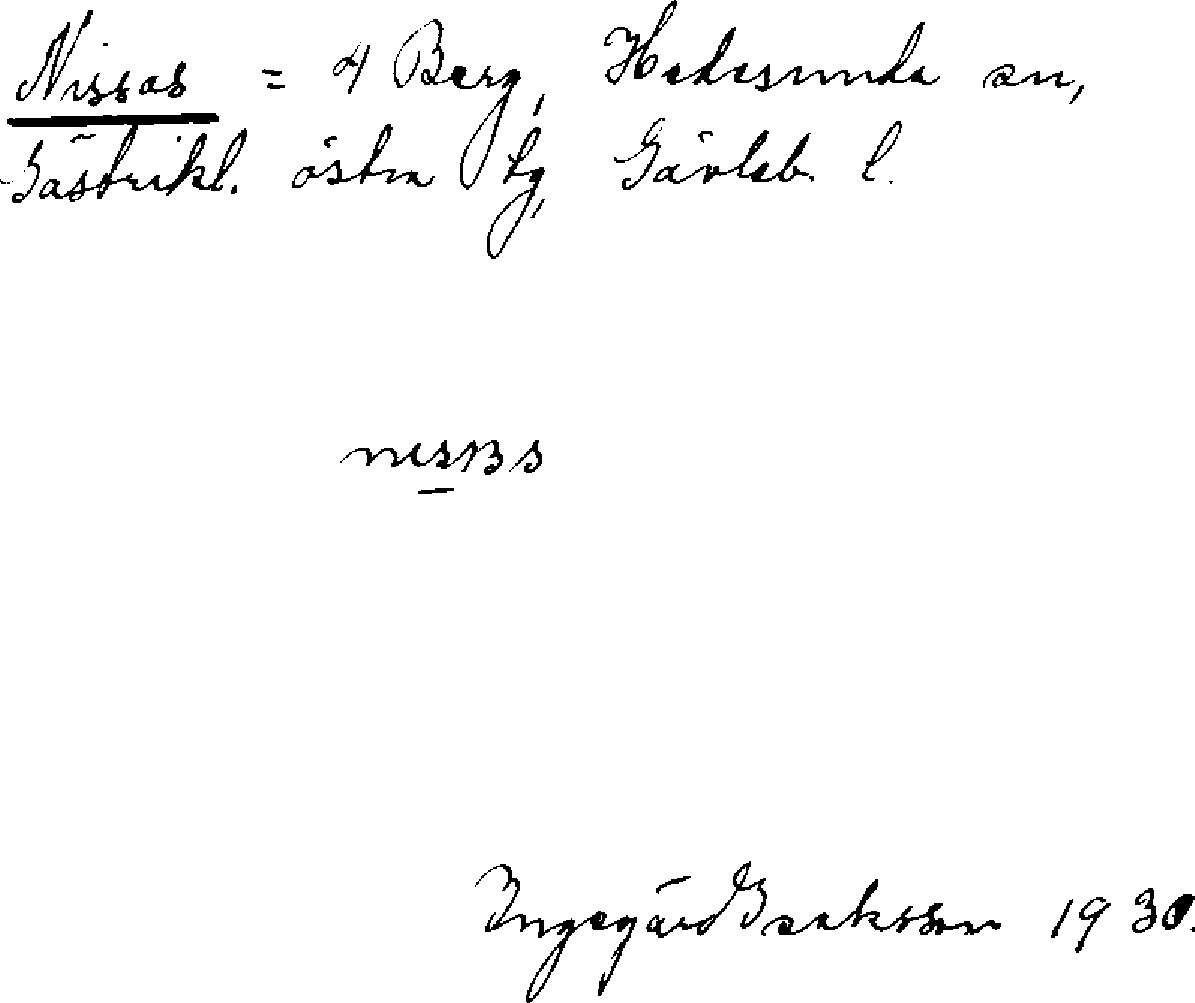 Nissas = 4 Berg, Hedesunda sn,
Gästrikl. östra tg, Gävleb. l.
Ingegärd Isaksson 1930.